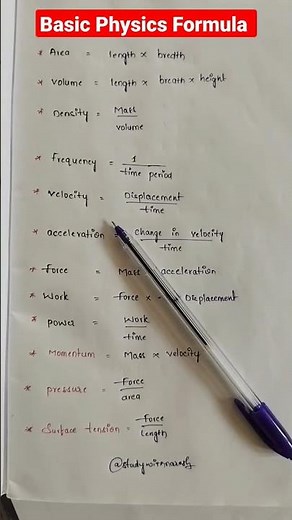 Basic Physics Formula
* Area = length × bredth
* volume = length × breath × height
* Density = Mass / volume
* frequency = 1 / time period
* velocity = Displacement / time
* acceleration = change in velocity / time
* force = Mass acceleration
* work = force × Displacement
* power = work / time
* Momentum = Mass × velocity
* pressure = Force / area
* Surface tension = Force / length